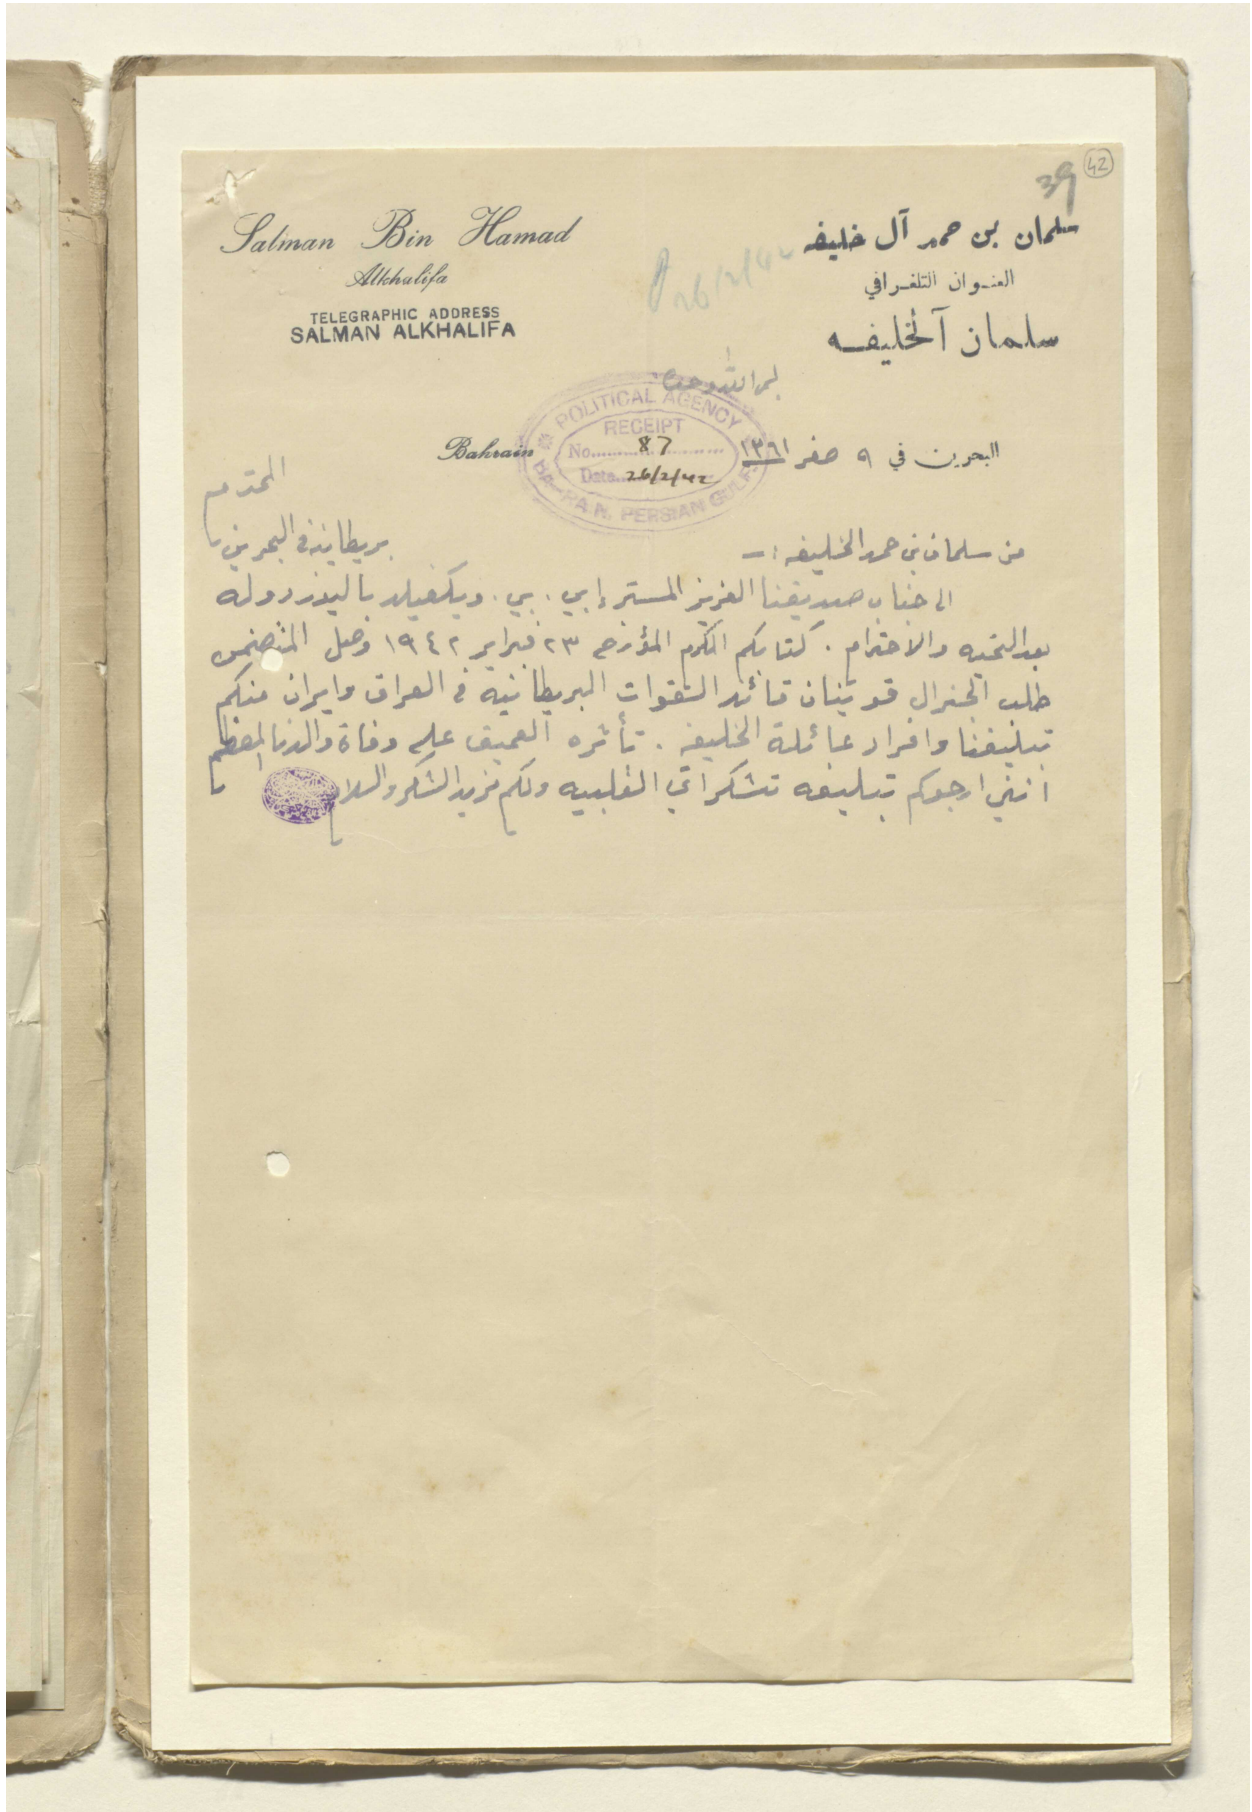 42
39
Salman Bin Hamad
Alkhalifa
TELEGRAPHIC ADDRESS
SALMAN ALKHALIFA
سلمان بن حمد آل خليفه
العنوان التلغرافي
سلمان آلخليفه
26/2/42
بسم الله وحده
POLITICAL AGENCY
RECEIPT
No. 87
Date 26/2/42
PERSIAN GULF
Bahrain
البحرين في ٩ صفر ١٣٦١
من سلمان بن حمد الخليفه :-
الى جناب صديقنا العزيز المستر إي . بي . ويكفيلد باليوز دولة
بريطانيه في البحرين
المحترم
بعد التحيه والاحترام . كتابكم المكرم المؤرخ ٢٣ فبراير ١٩٤٢ وصل المتضمن
طلب الجنرال قوينان قائد القوات البريطانيه في العراق وايران منكم
تبليغنا وافراد عائلة الخليفه . تأثره العميق على وفاة والدنا المعظم
انني ارجوكم تبليغه تشكراتي القلبيه ولكم مزيد الشكر والسلام